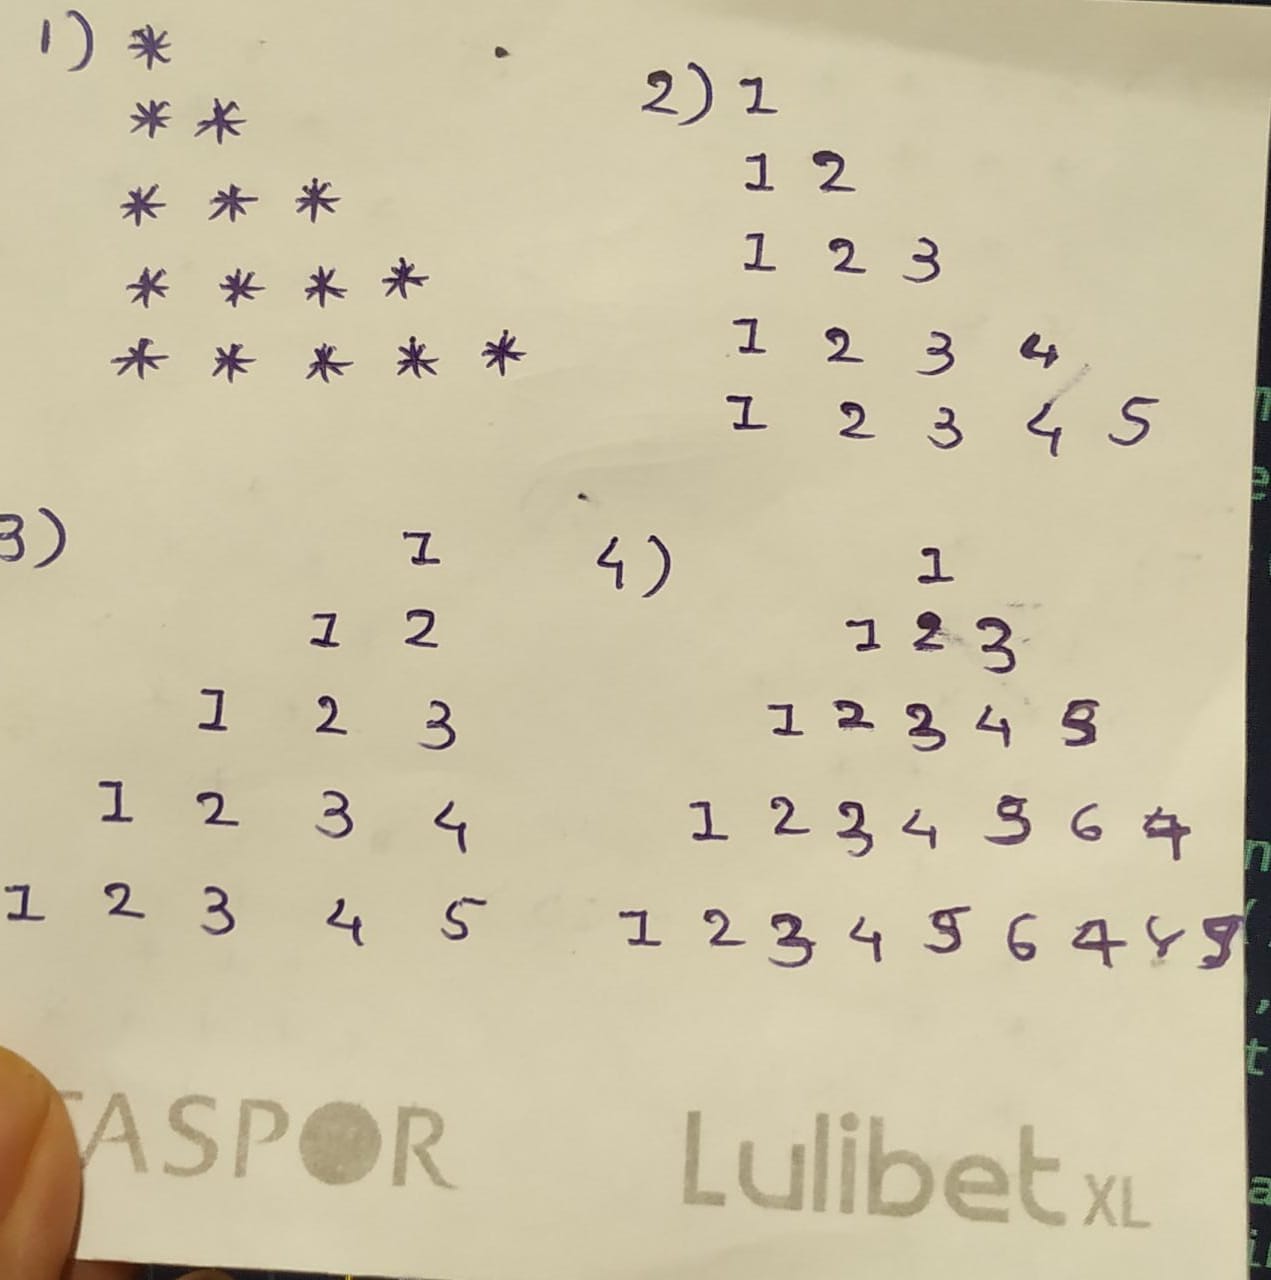 1) *
* *
* * *
* * * *
* * * * *
2) 1
1 2
1 2 3
1 2 3 4
1 2 3 4 5
3) 1
1 2
1 2 3
1 2 3 4
1 2 3 4 5
4) 1
1 2 3
1 2 3 4 5
1 2 3 4 5 6 7
1 2 3 4 5 6 7 8 9
ASPOR
Lulibet XL